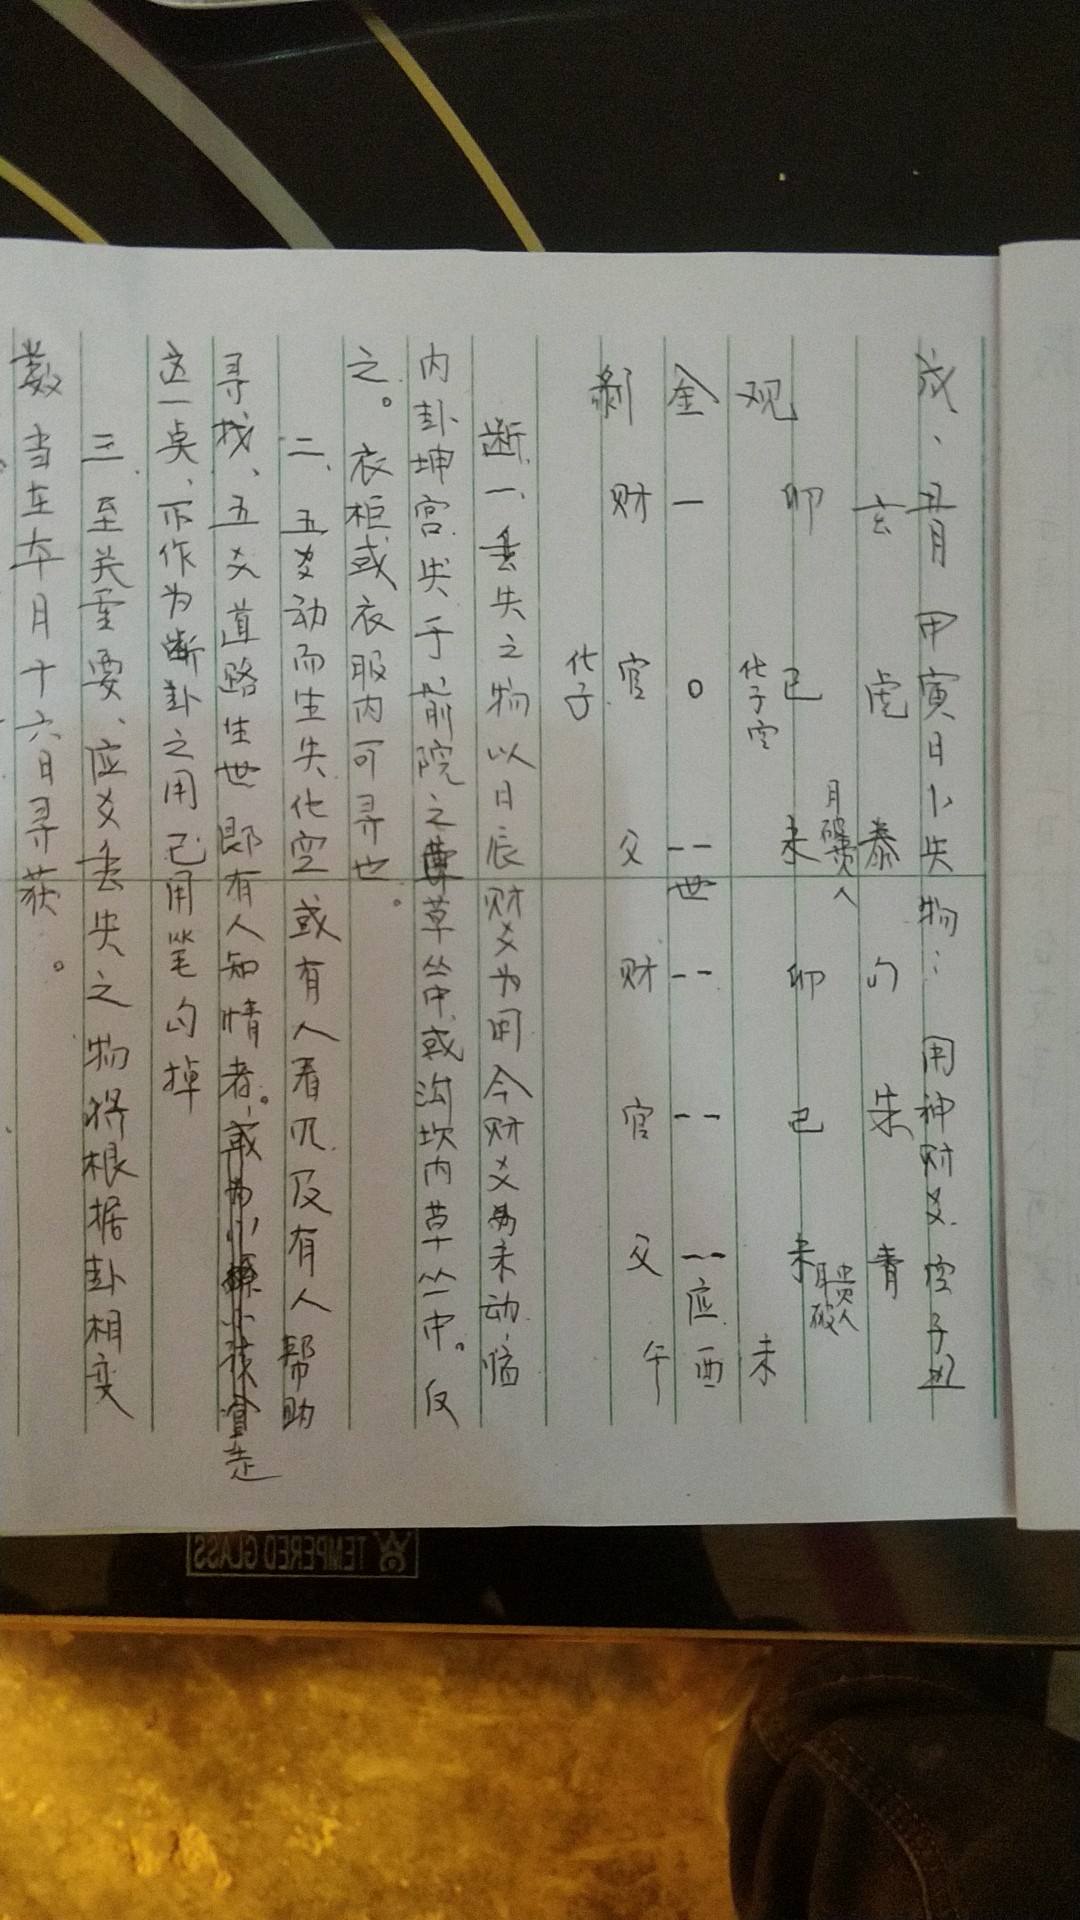 戌、丑月 甲寅日卜失物: 用神财爻 空子丑
玄 虎 勾 朱 青
卯 巳 未 卯 巳 未
月破贵人
月破贵人
观 化子空 未
金 一 O -- 世 -- -- -- 应 酉
剥 财 官 父 财 官 父 午
化子
断、一、丢失之物以日辰财爻为用今财爻未动、临
内卦坤宫失于前院之草丛中或沟坎内草丛中。反
之。衣柜或衣服内可寻也。
二、五爻动而生失化空或有人看见及有人帮助
寻找、五爻道路生世即有人知情者。
这一点、不作为断卦之用已用笔勾掉
三、至关重要、应爻丢失之物将根据卦相变
数当在本月十六日寻获。
TEMPERED GLASS